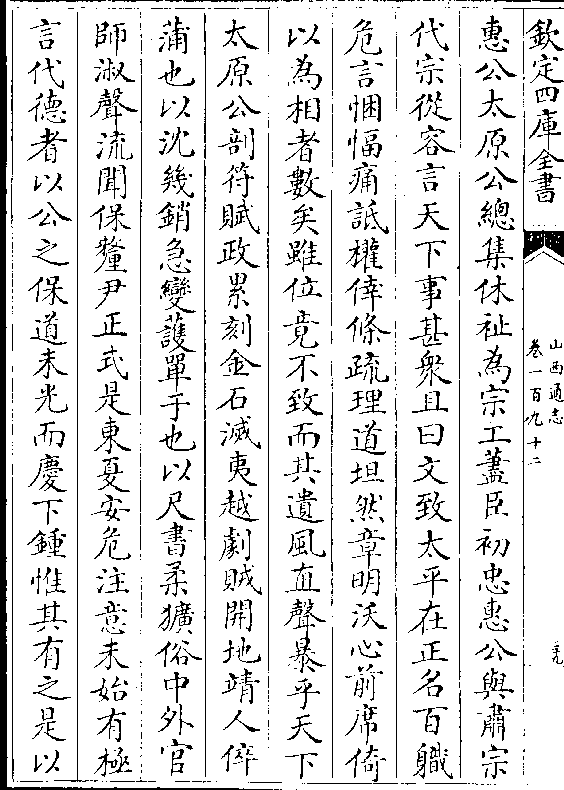 欽定四庫全書
山西通志
卷一百九十二
三九
惠公太原公總集休祉為宗工藎臣初忠惠公與肅宗
代宗從容言天下事甚衆且曰文致太平在正名百職
危言悃愊痛詆權倖條疏理道坦然章明沃心前席倚
以為相者數矣雖位竟不致而其遺風直聲暴乎天下
太原公剖符賦政累刻金石滅夷越劇賊開地靖人倅
蒲也以沈幾銷急變護單于也以尺書柔獷俗中外官
師淑聲流聞保釐尹正式是東夏安危注意未始有極
言代德者以公之保道未光而慶下鍾惟其有之是以